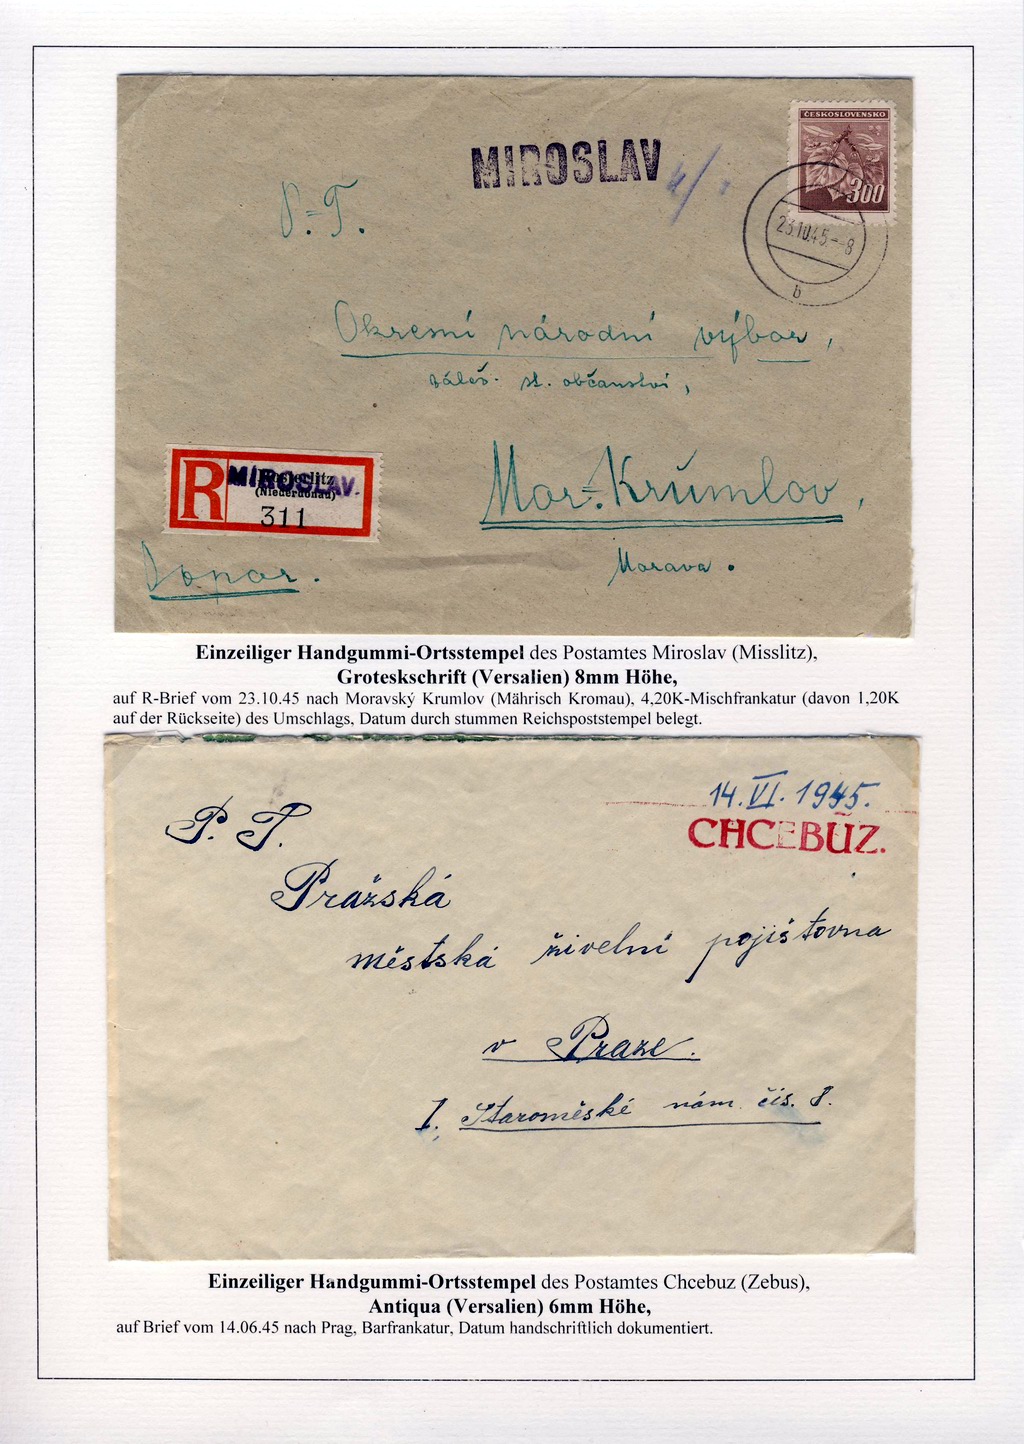 ČESKOSLOVENSKO
300
MIROSLAV
23.10.45.--8
b
P.=T.
Okresní národní výbor,
st. občanství,
R
MIROSLAV.
(Niederdonau)
311
Mor.=Krumlov,
Morava.
Dopor.
Einzeiliger Handgummi-Ortsstempel des Postamtes Miroslav (Misslitz),
Groteskschrift (Versalien) 8mm Höhe,
auf R-Brief vom 23.10.45 nach Moravský Krumlov (Mährisch Kromau), 4,20K-Mischfrankatur (davon 1,20K
auf der Rückseite) des Umschlags, Datum durch stummen Reichspoststempel belegt.
14. VI. 1945.
CHCEBUZ.
P. T.
Pražská
městská živelní pojišťovna
v Praze.
I. Staroměské nám. čís. 8.
Einzeiliger Handgummi-Ortsstempel des Postamtes Chcebuz (Zebus),
Antiqua (Versalien) 6mm Höhe,
auf Brief vom 14.06.45 nach Prag, Barfrankatur, Datum handschriftlich dokumentiert.